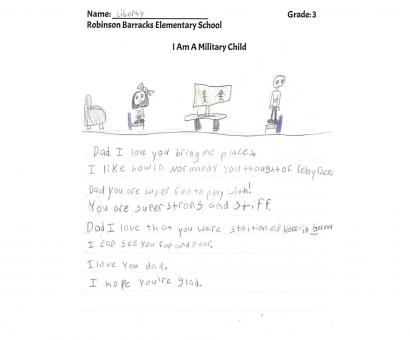 Name: Liberty Grade: 3
Robinson Barracks Elementary School
I Am A Military Child
Dad I love you bring me places.
I like how in Normandy you thought of relay races
Dad you are super fun to play with!
You are super strong and stiff.
Dad I love that you were staitioned here in
I can see you far and near.
I love you dad.
I hope you're glad.